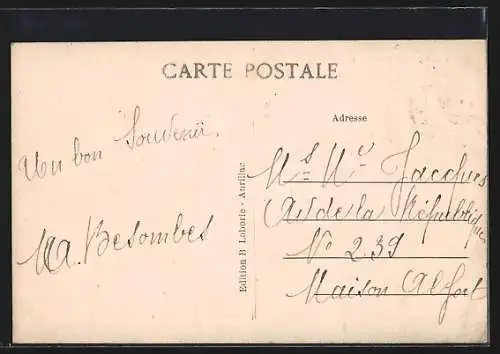 CARTE POSTALE
Un bon Souvenir
MA. Besombes
Edition B Laborie - Aurillac
Adresse
Jacques
Av de la République
N° 239
Maison Alfort